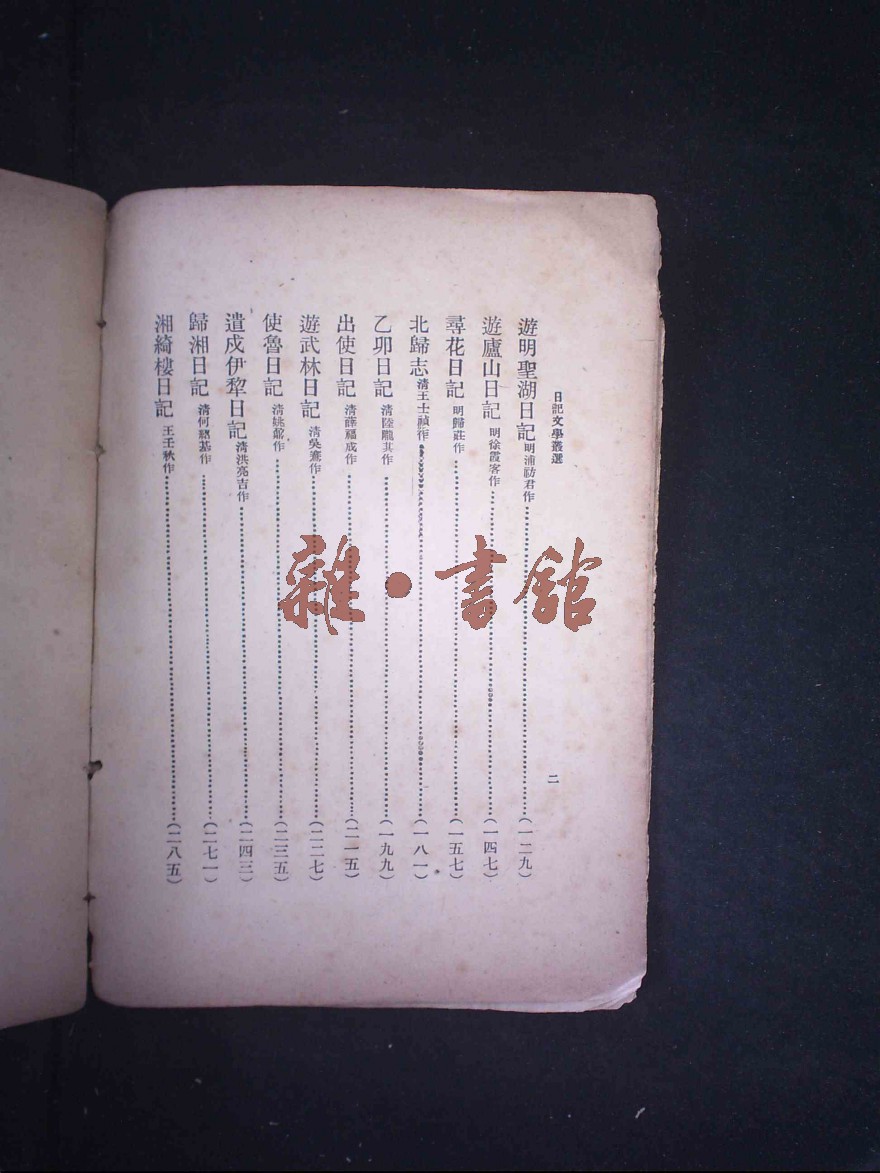 日記文學叢選
二
遊明聖湖日記 明浦祊君作 (一二九)
遊廬山日記 明徐霞客作 (一四七)
尋花日記 明歸莊作 (一五七)
北歸志 清王士禎作 (一八一)
乙卯日記 清陸隴其作 (一九九)
出使日記 清薛福成作 (二一五)
遊武林日記 清吳騫作 (二二七)
使魯日記 清姚鼐作 (二三五)
遣戍伊犂日記 清洪亮吉作 (二四三)
歸湘日記 清何紹基作 (二七一)
湘綺樓日記 王壬秋作 (二八五)
雜·書館